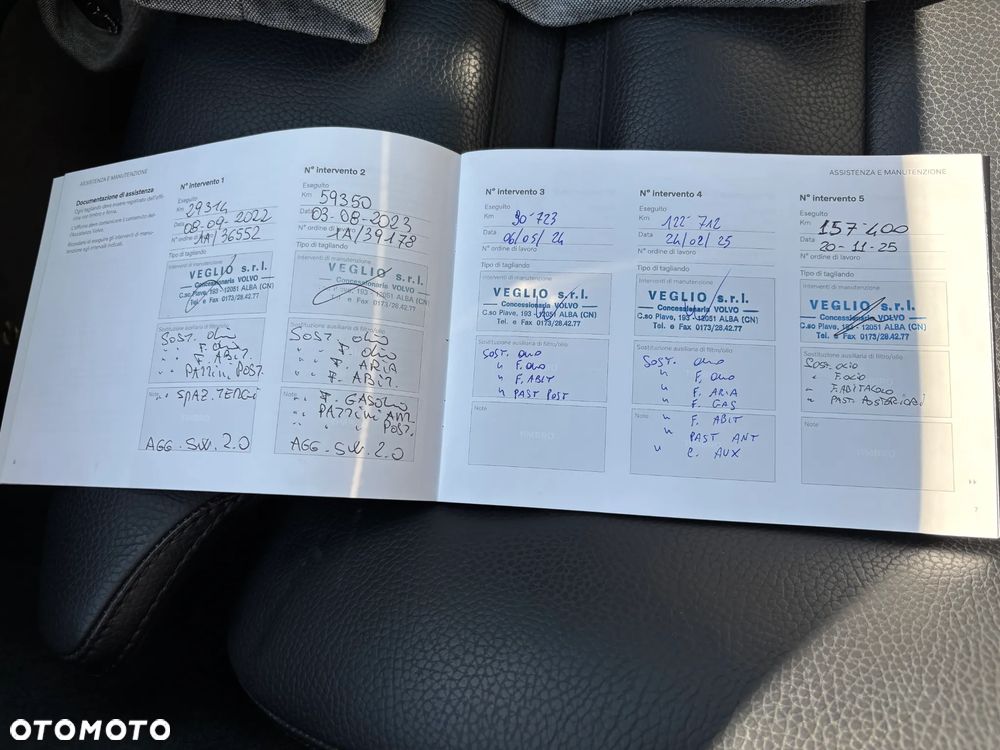 ASSISTENZA E MANUTENZIONE
Documentazione di assistenza
N° intervento 1
Eseguito
Km 29314
Data 08-09-2022
N° ordine di 1A/36552
Tipo di tagliando
Interventi di manutenzione
VEGLIO s.r.l.
Concessionaria VOLVO
C.so Piave, 193 - 12051 ALBA (CN)
Tel. e Fax 0173/28.42.77
Sostituzione ausiliaria di filtro/olio
SOST. OLIO
" " F. OLIO
" " F. ABIT.
" " PATTINI POST.
Note " SPAZ. TERGI
AGG. SW. 2.0
N° intervento 2
Eseguito
Km 59350
Data 03-08-2023
N° ordine di 1A/39178
Tipo di tagliando
Interventi di manutenzione
VEGLIO s.r.l.
Concessionaria VOLVO
C.so Piave, 193 - 12051 ALBA (CN)
Tel. e Fax 0173/28.42.77
Sostituzione ausiliaria di filtro/olio
SOST. OLIO
" " F. OLIO
" " F. ARIA
" " F. ABIT.
Note " F. GASOLIO
" " PATTINI ANT.
" " " POST.
AGG. SW. 2.0
6
ASSISTENZA E MANUTENZIONE
N° intervento 3
Eseguito
Km 90-723
Data 06/05/24
N° ordine di lavoro
Tipo di tagliando
Interventi di manutenzione
VEGLIO s.r.l.
Concessionaria VOLVO
C.so Piave, 193 - 12051 ALBA (CN)
Tel. e Fax 0173/28.42.77
Sostituzione ausiliaria di filtro/olio
SOST. OLIO
" F. OLIO
" F. ABIT
" PAST POST
Note
TIMBRO
N° intervento 4
Eseguito
Km 122-712
Data 24/02/25
N° ordine di lavoro
Tipo di tagliando
Interventi di manutenzione
VEGLIO s.r.l.
Concessionaria VOLVO
C.so Piave, 193 - 12051 ALBA (CN)
Tel. e Fax 0173/28.42.77
Sostituzione ausiliaria di filtro/olio
SOST. OLIO
" F. OLIO
" F. ARIA
" F. GAS
Note " F. ABIT
" PAST ANT
" C. AUX
N° intervento 5
Eseguito
Km 157-400
Data 20-11-25
N° ordine di lavoro
Tipo di tagliando
Interventi di manutenzione
VEGLIO s.r.l.
Concessionaria VOLVO
C.so Piave, 193 - 12051 ALBA (CN)
Tel. e Fax 0173/28.42.77
Sostituzione ausiliaria di filtro/olio
SOST. OLIO
" F. OLIO
" F. ABITACOLO
" PAST. POSTERIORI
Note
TIMBRO
7
OTOMOTO